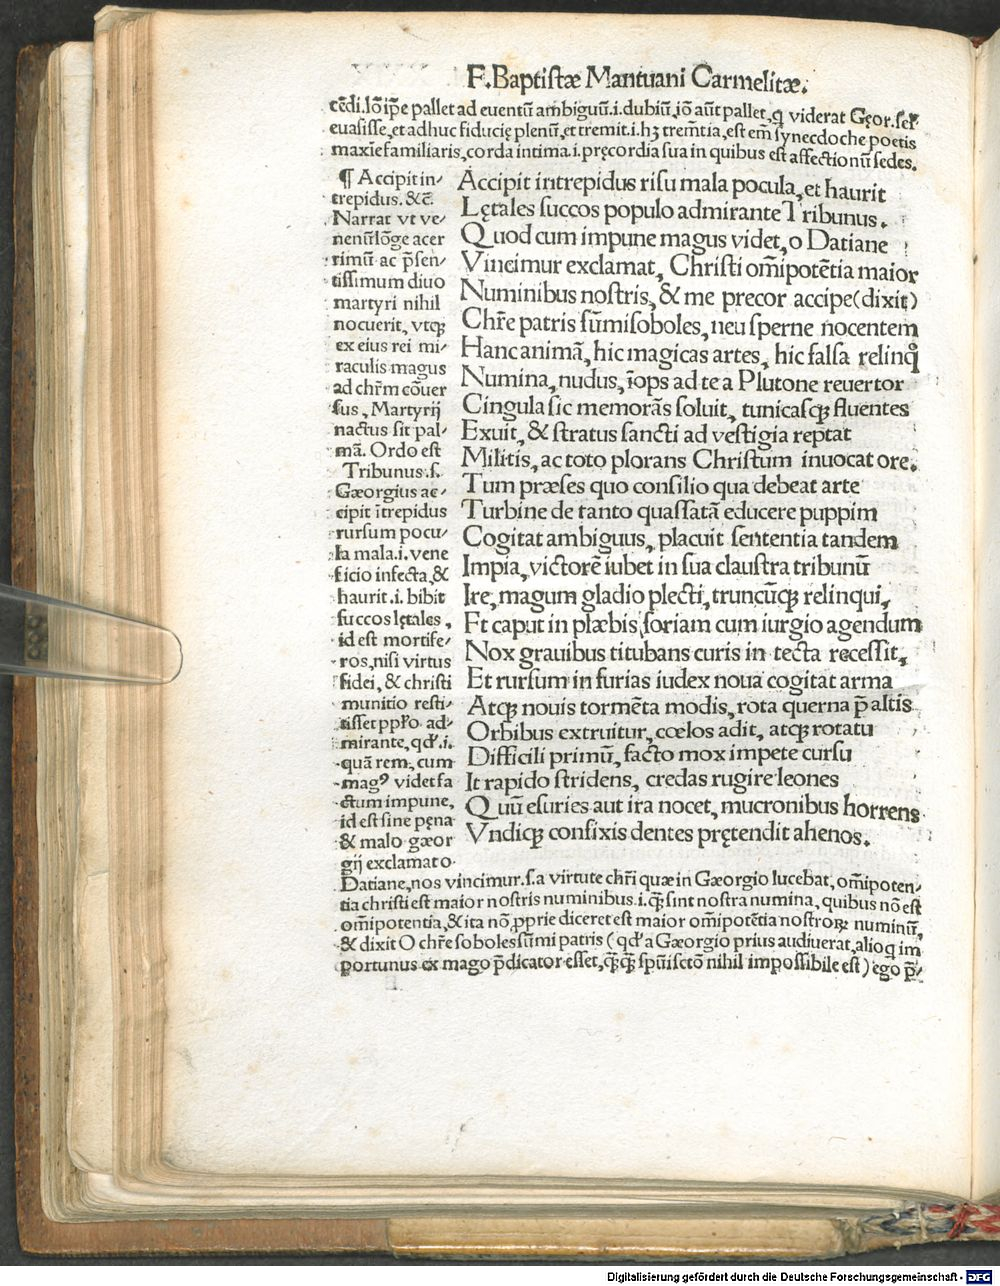 F.Baptistæ Mantuani Carmelitæ.
tẽdi.Iõ ip̃e pallet ad euentũ ambiguũ.i.dubiũ,iõ aũt pallet,q̨ viderat Gęor.sęł
euasisse,et adhuc fiducię plenũ,et tremit.i.hꝫ trem̃tia,est em̃ synecdoche poetis
maxĩe familiaris,corda intima.i.pręcordia sua in quibus est affectionũ sedes.
¶ Accipit in-
trepidus. &c̃.
Narrat vt ve-
nenũ lõge acer
rimũ ac p̃sen-
tissimum diuo
martyri nihil
nocuerit, vtqꝫ
ex eius rei mi-
raculis magus
ad chr̃m cõuer
sus, Martyrij
nactus sit pal-
mã. Ordo est
Tribunus.s.
Gæorgius ac-
cipit ĩtrepidus
rursum pocu-
la mala.i.vene
ficio infecta,&
haurit.i. bibit
succos lętales,
id est mortife-
ros,nisi virtus
fidei, & christi
munitio resti-
tisset pp̃lo ad-
mirante, qd̃.i.
quã rem, cum
magꝰ videt fa
ctum impune,
id est sine pęna
& malo gæor
gij exclamat o
Accipit intrepidus risu mala pocula, et haurit
Lętales succos populo admirante Tribunus.
Quod cum impune magus videt, o Datiane
Vincimur exclamat, Christi om̃ipotẽtia maior
Numinibus nostris, & me precor accipe (dixit)
Chr̃e patris sũmi soboles, neu sperne nocentem
Hanc animã, hic magicas artes, hic falsa relinqͦ
Numina, nudus, ĩops ad te a Plutone reuertor
Cingula sic memorãs soluit, tunicasqꝫ fluentes
Exuit, & stratus sancti ad vestigia reptat
Militis, ac toto plorans Christum inuocat ore.
Tum præses quo consilio qua debeat arte
Turbine de tanto quassatã educere puppim
Cogitat ambiguus, placuit sententia tandem
Impia, victorẽ iubet in sua claustra tribunũ
Ire, magum gladio plecti, truncũqꝫ relinqui,
Et caput in plæbis, soriam cum iurgio agendum
Nox grauibus titubans curis in tecta recessit,
Et rursum in furias iudex noua cogitat arma
Atqꝫ nouis tormẽta modis, rota querna p̃altis
Orbibus extruitur, cœlos adit, atqꝫ rotatu
Difficili primũ, facto mox impete cursu
It rapido stridens, credas rugire leones
Quũ esuries aut ira nocet, mucronibus horrens
Vndiqꝫ confixis dentes prętendit ahenos.
Datiane,nos vincimur.s.a virtute chr̃i quæ in Gæorgio lucebat, om̃ipoten-
tia christi est maior nostris numinibus.i.q̃ꝫ sint nostra numina, quibus nõ est
om̃ipotentia, & ita nõ ꝓprie diceret est maior om̃ipotẽtia nostroꝝ numinũ,
& dixit O chr̃e soboles sũmi patris ( qd̃ a Gæorgio prius audiuerat, alioq̨ im
portunus ex mago p̃dicator esset, q̃ꝫq̃ꝫ spũi sctõ nihil impossibile est) ego p̃-
Digitalisierung gefördert durch die Deutsche Forschungsgemeinschaft - DFG